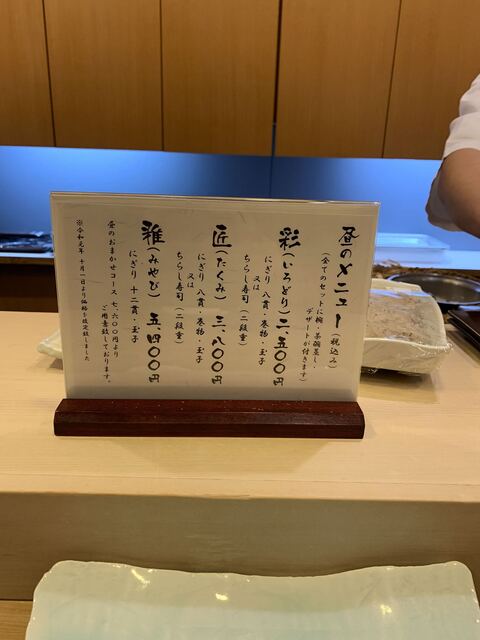 昼のメニュー(税込み)
(全てのセットに椀・茶碗蒸し・
デザートが付きます)
彩(いろどり)二、五〇〇円
にぎり 八貫・巻物・玉子
又は
ちらし寿司(二段重)
匠(たくみ)三、八〇〇円
にぎり 八貫・巻物・玉子
又は
ちらし寿司(二段重)
雅(みやび)五、四〇〇円
にぎり 十二貫・玉子
昼のおまかせコース 七、六〇〇円より
ご用意致しております。
※令和元年 十月一日より価格を改定致しました